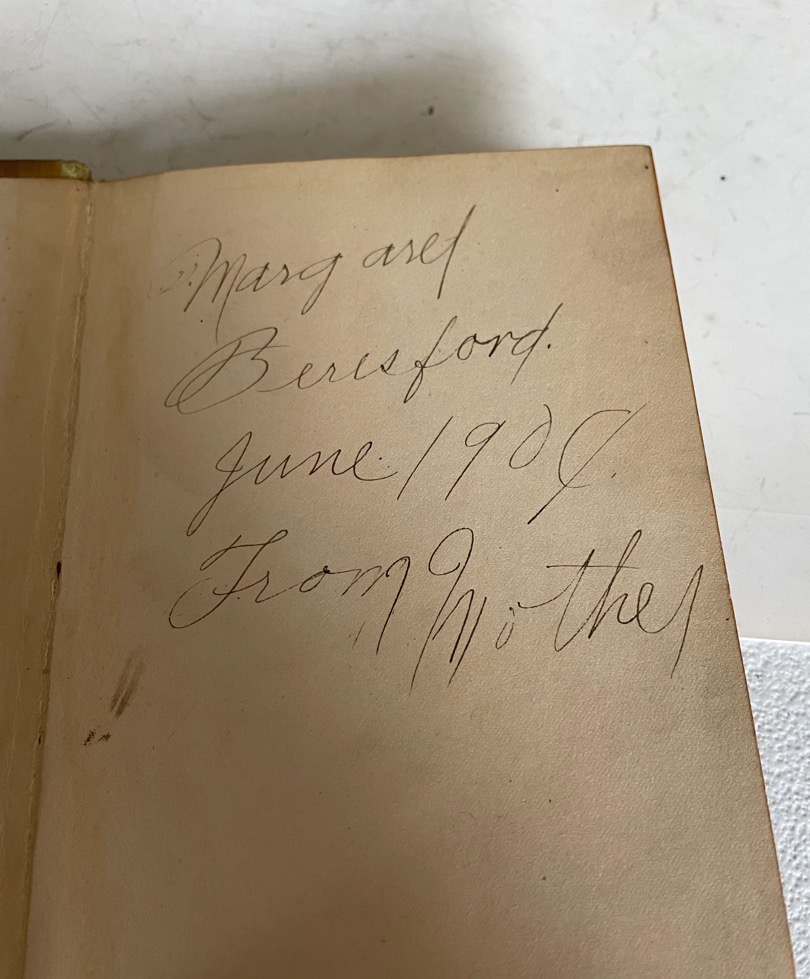 Margaret
Beresford.
June 190
From Mother